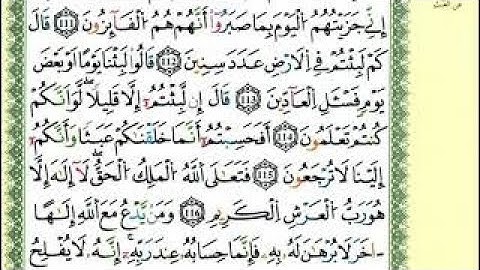 إِنِّي جَزَيْتُهُمُ ٱلْيَوْمَ بِمَا صَبَرُوٓا۟ أَنَّهُمْ هُمُ ٱلْفَآئِزُونَ ١١١ قَالَ
كَمْ لَبِثْتُمْ فِى ٱلْأَرْضِ عَدَدَ سِنِينَ ١١٢ قَالُوا۟ لَبِثْنَا يَوْمًا أَوْ بَعْضَ
يَوْمٍ فَسْـَٔلِ ٱلْعَآدِّينَ ١١٣ قَـٰلَ إِن لَّبِثْتُمْ إِلَّا قَلِيلًا ۖ لَّوْ أَنَّكُمْ
كُنتُمْ تَعْلَمُونَ ١١٤ أَفَحَسِبْتُمْ أَنَّمَا خَلَقْنَـٰكُمْ عَبَثًا وَأَنَّكُمْ
إِلَيْنَا لَا تُرْجَعُونَ ١١٥ فَتَعَـٰلَى ٱللَّهُ ٱلْمَلِكُ ٱلْحَقُّ ۖ لَآ إِلَـٰهَ إِلَّا
هُوَ رَبُّ ٱلْعَرْشِ ٱلْكَرِيمِ ١١٦ وَمَن يَدْعُ مَعَ ٱللَّهِ إِلَـٰهًا
ءَاخَرَ لَا بُرْهَـٰنَ لَهُۥ بِهِۦ فَإِنَّمَا حِسَابُهُۥ عِندَ رَبِّهِۦٓ ۚ إِنَّهُۥ لَا يُفْلِحُ